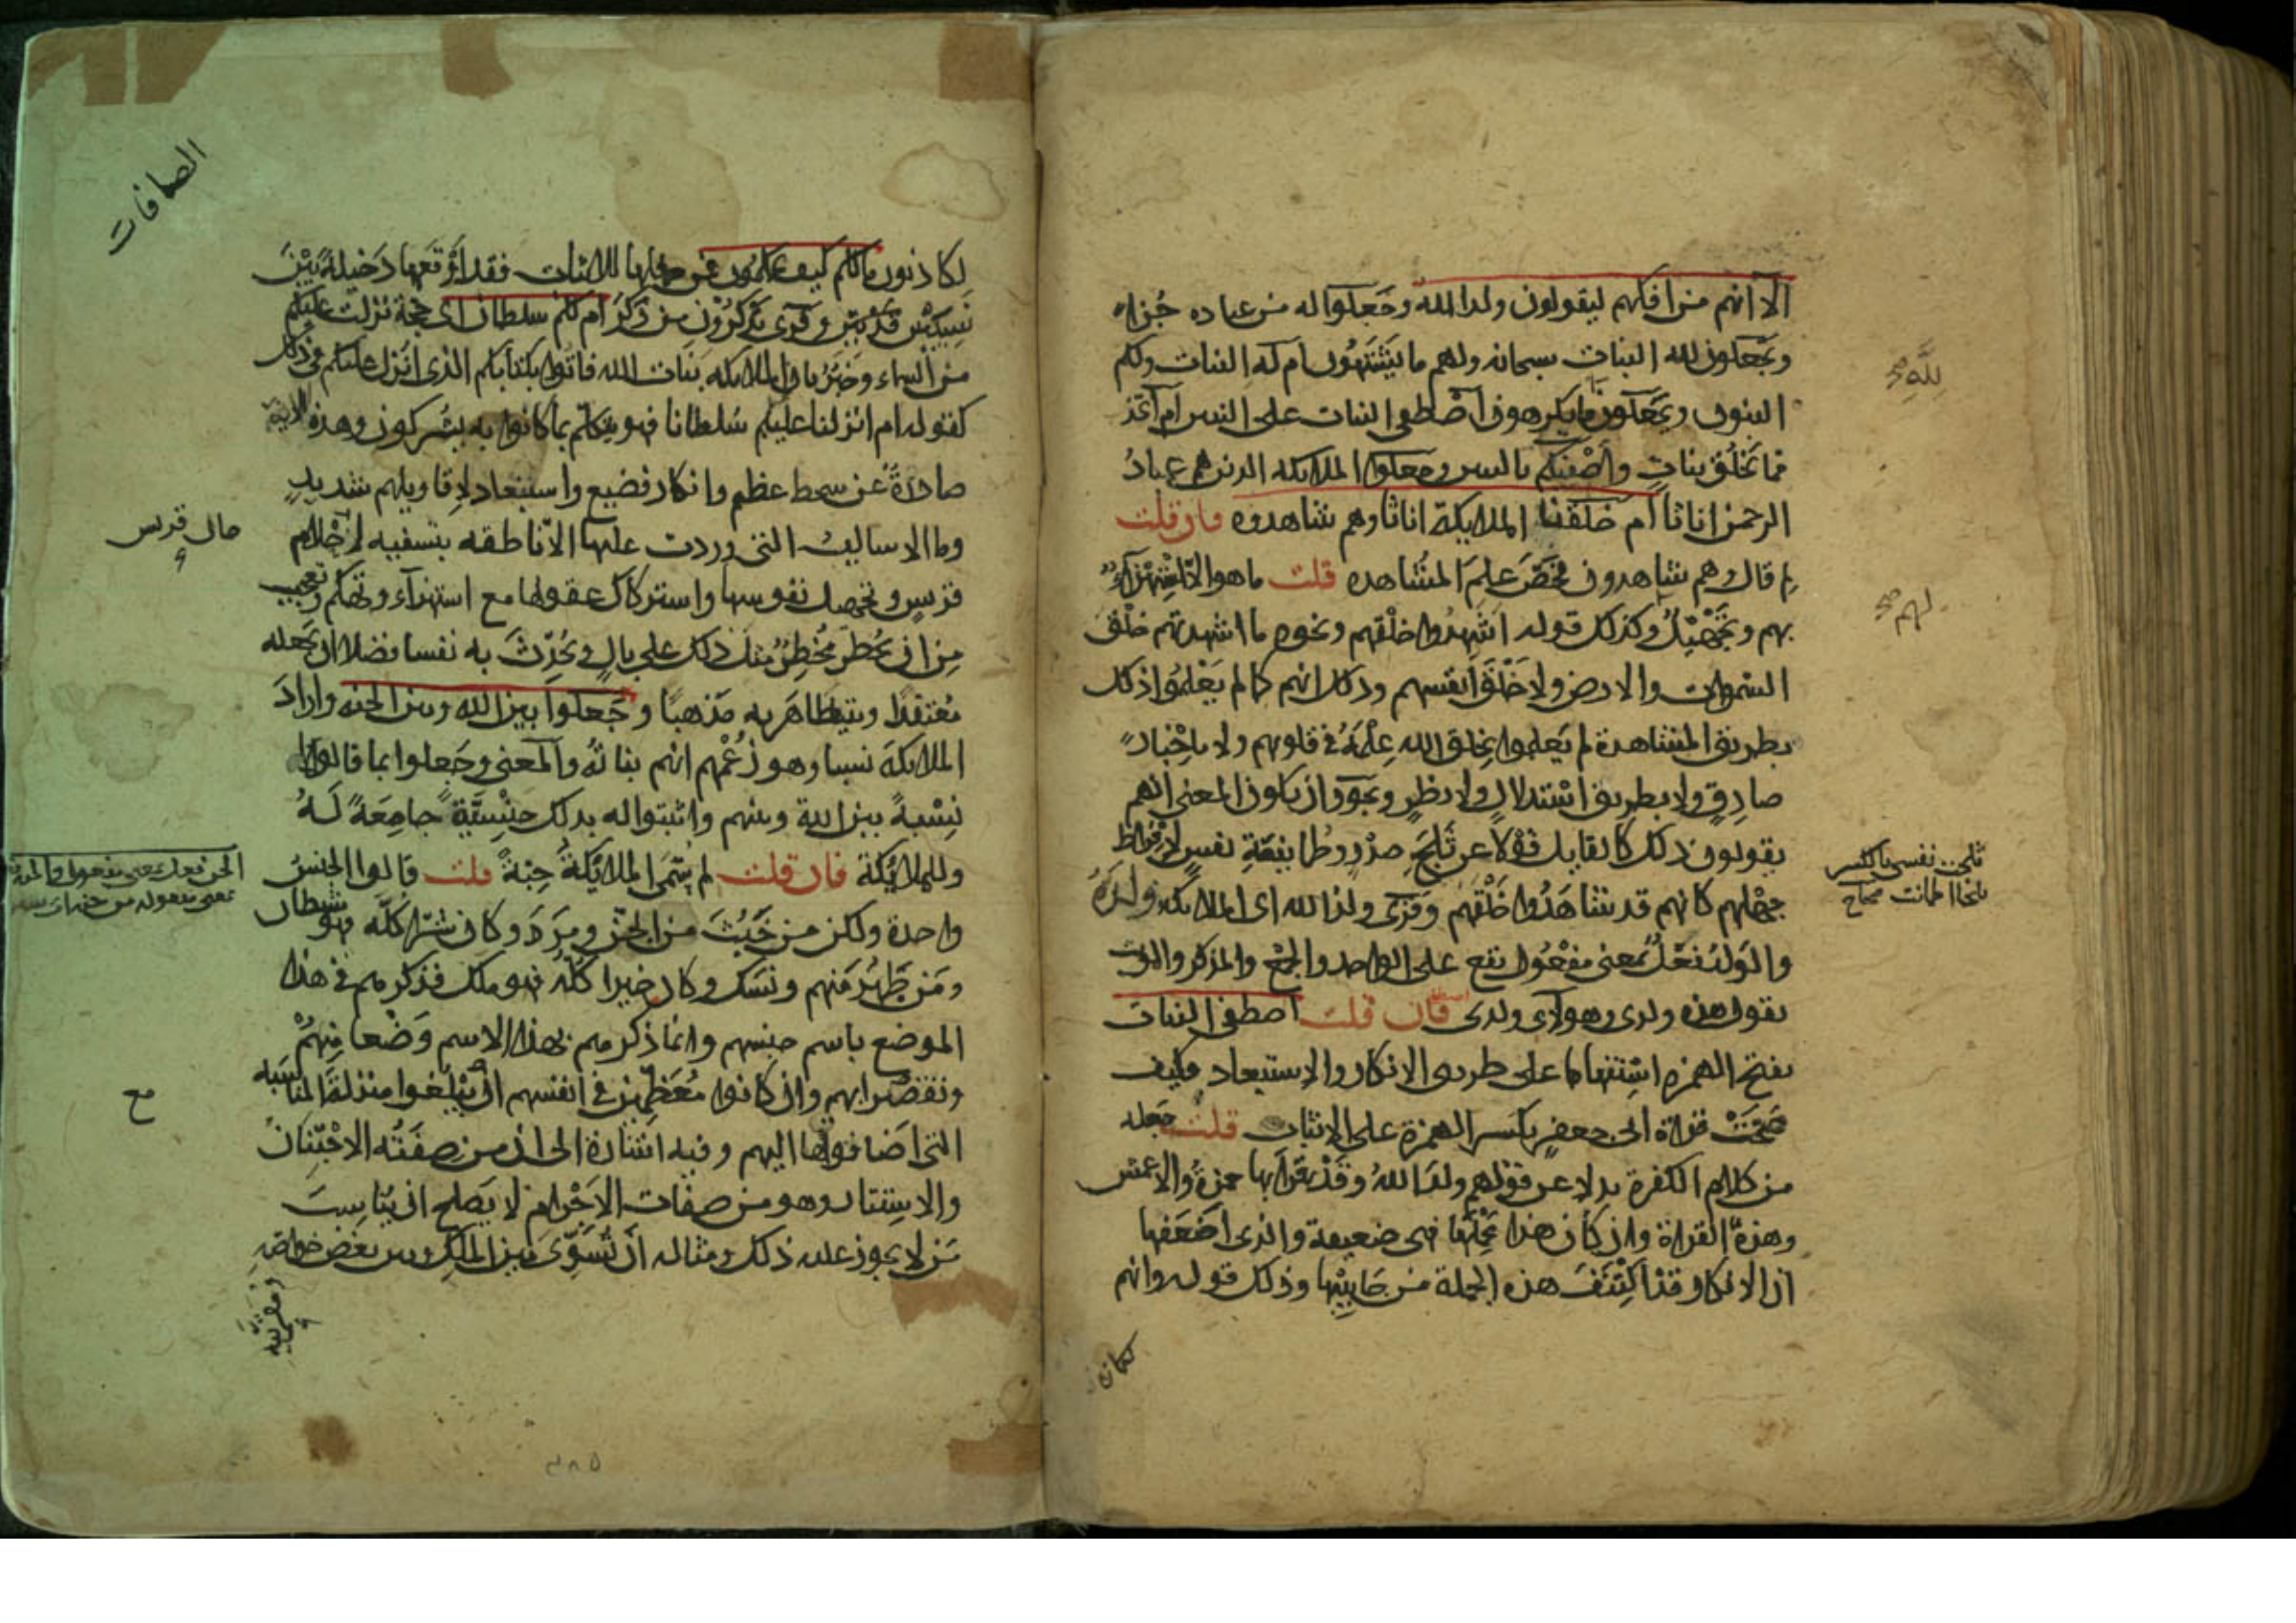 الا انهم من افكهم ليقولون ولد الله وجعلوا له من عباده جزءا
ويجعلون لله البنات سبحانه ولهم ما يشتهون ام له البنات ولكم
البنون ويجعلون لله ما يكرهون اصطفى البنات على البنين ام اتخذ
مما يخلق بنات واصفيكم بالبنين وجعلوا الملائكة الذين هم عباد
الرحمن اناثا ام خلقنا الملايكة اناثا وهم شاهدون فان قلت
لم قال وهم شاهدون فخص علم المشاهده قلت ما هو الا استهزاء
بهم وتجهيل وكذلك قوله اشهدوا خلقهم ونحوه ما اشهدتهم خلق
السموات والارض ولا خلق انفسهم وذلك انهم كما لم يعلموا ذلك
بطريق المشاهدة لم يعلموا بخلق الله علمه في قلوبهم ولا باخبار
صادق ولا بطريق استدلال ولا نظر ويجوز ان يكون المعنى انهم
يقولون ذلك كالقايل قولا عن ثلج صدر وطمانينة نفس لافراط
جهلهم كانهم قد شاهدوا خلقهم وقرئ ولد الله اى الملايكة ولده
والولد فعل بمعنى مفعول يقع على الواحد والجمع والمذكر والمونث
يقول هذه ولدى وهولاء ولدى فان قلت اصطفى البنات
بفتح الهمزه استفهاما على طريق الانكار والاستبعاد فكيف
صحت قراة ابى جعفر بكسر الهمزة على الاثبات قلت جعله
من كلام الكفرة بدلا عن قولهم ولد الله وقد قرا بها حمزة والاعمش
وهذه القراة وان كان هذا محملها فهى ضعيفة والذى اضعفها
ان الانكار قد اكتنف هذه الجملة من جانبيها وذلك قوله وانهم
لله صح
لهم صح
ثلجت نفسى بالكسر
ثلجا اطمانت صحاح
الصافات
لكاذبون ما لكم كيف تحكمون فمن جعلها للاثبات فقد اوقعها دخيلة بين
نسيبين قد بين وقرى تذكرون من ذكر ام لكم سلطان اى حجة نزلت عليكم
من السماء وخبر بان الملايكه بنات الله فاتوا بكتابكم الذى انزل عليكم فى ذلك
كقوله ام انزلنا عليهم سلطانا فهو يتكلم بما كانوا به يشركون وهذه الاية
صادرة عن سخط عظيم وانكار فضيع واستبعاد لاقاويلهم شديد
وما الاساليب التى وردت عليها الا ناطقه بتسفيه احلام
قريش وتجهيل نفوسها واستركاك عقولها مع استهزآء وتهكم وتعجيب
من ان يخطر مخطر مثل ذلك على بال ويحدث به نفسا فضلا ان يجعله
معتقدا ويتظاهر به مذهبا وجعلوا بين الله وبين الجنه واراد
الملايكة نسبا وهو زعمهم انهم بناته والمعنى وجعلوا بما قالوا
نسبة بين الله وبينهم واثبتوا له بذلك جنسية جامعة له
وللملايكة فان قلت لم سمى الملايكة جنة قلت قالوا الجنس
واحدة ولكن من خبث من الجن ومرد وكان شرا كله فهو شيطان
ومن طهر منهم ونسك وكان خيرا كله فهو ملك فذكرهم فى هذا
الموضع باسم جنسهم وانما ذكرهم بهذا الاسم وضعا منهم
وتقصيرا بهم وان كانوا معظمين فى انفسهم ان يبلغوا منزلة المناسبه
التى اضافوها اليهم وفيه اشارة الى ان من صفته الاجتنان
والاستتار وهو من صفات الاجرام لا يصلح ان يناسب
من لا يجوز عليه ذلك ومثاله ان تسوى بين الملك وبين بعض خواصه
ومقربيه